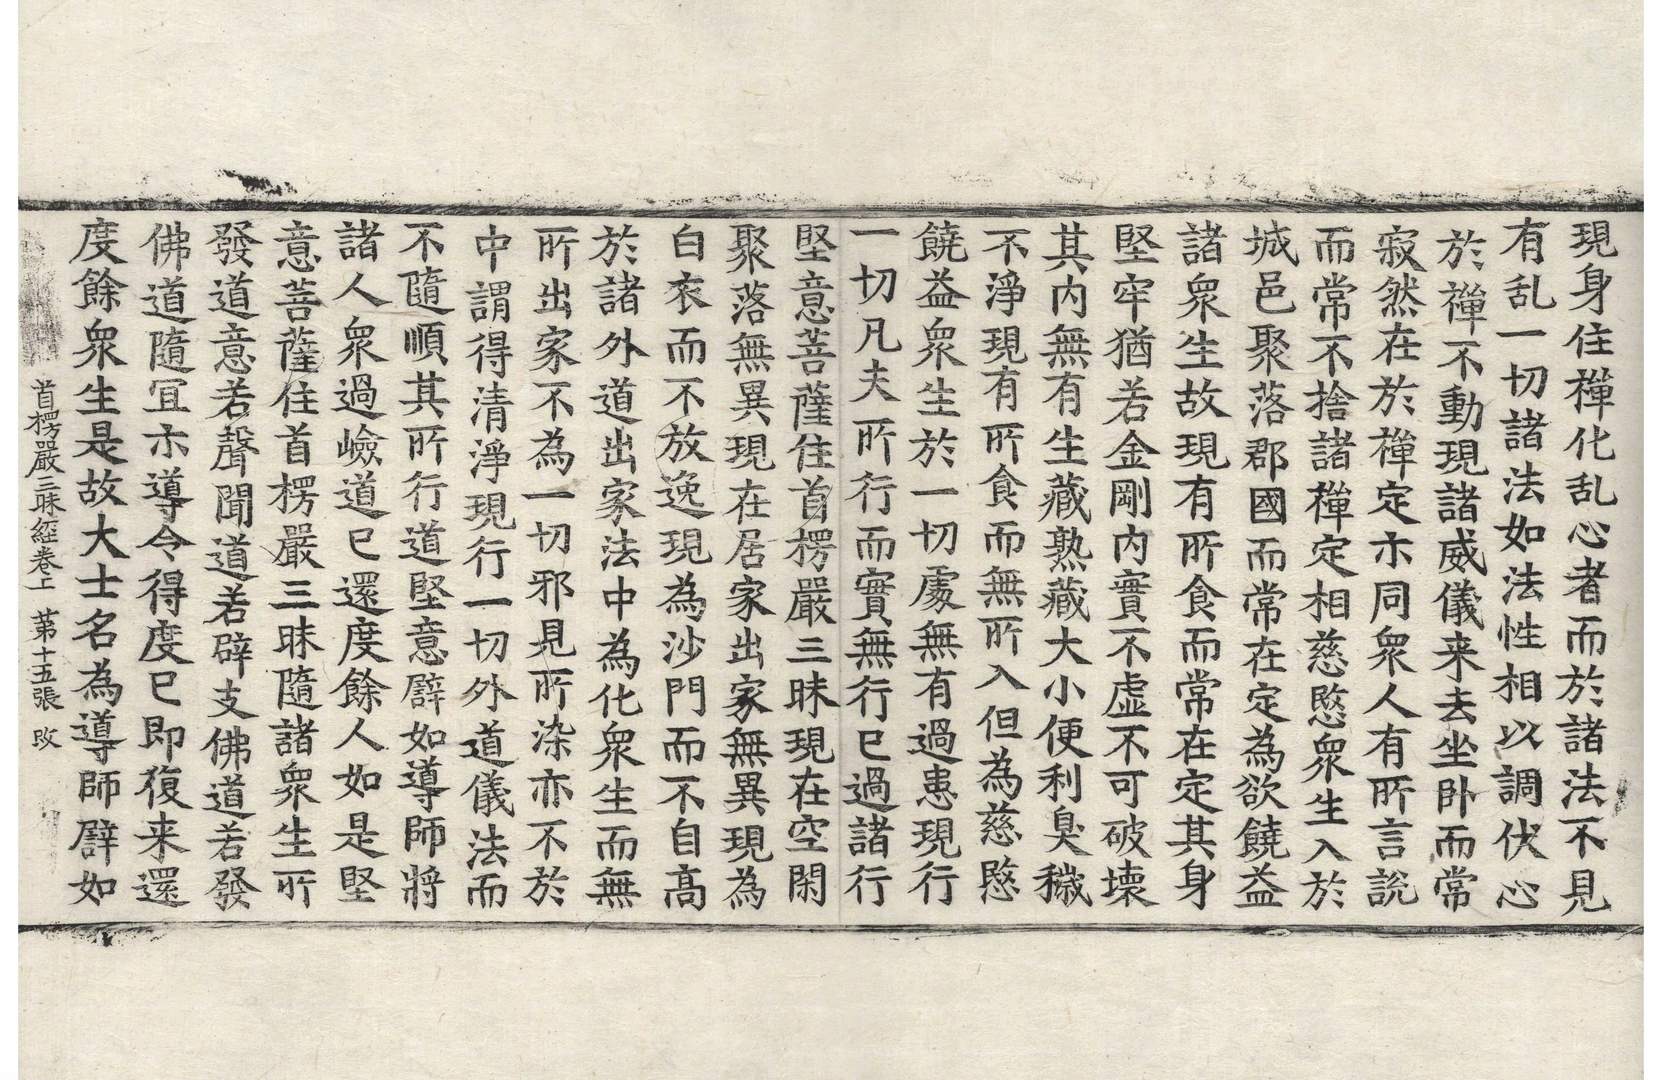 現身住禪化乱心者而於諸法不見
有乱一切諸法如法性相以調伏心
於禪不動現諸威儀来去坐卧而常
寂然在於禪定亦同衆人有所言說
而常不捨諸禪定相慈愍衆生入於
城邑聚落郡國而常在定為欲饒益
諸衆生故現有所食而常在定其身
堅牢猶若金剛內實不虚不可破壞
其內無有生藏熟藏大小便利臭穢
不淨現有所食而無所入但為慈愍
饒益衆生於一切處無有過患現行
一切凡夫所行而實無行已過諸行
堅意菩薩住首楞嚴三昧現在空閑
聚落無異現在居家出家無異現為
白衣而不放逸現為沙門而不自高
於諸外道出家法中為化衆生而無
所出家不為一切邪見所染亦不於
中謂得清淨現行一切外道儀法而
不隨順其所行道堅意譬如導師將
諸人衆過嶮道已還度餘人如是堅
意菩薩住首楞嚴三昧隨諸衆生所
發道意若聲聞道若辟支佛道若發
佛道隨冝示導令得度已即復来還
度餘衆生是故大士名為導師譬如
首楞嚴三昧經卷上 第十五張 改